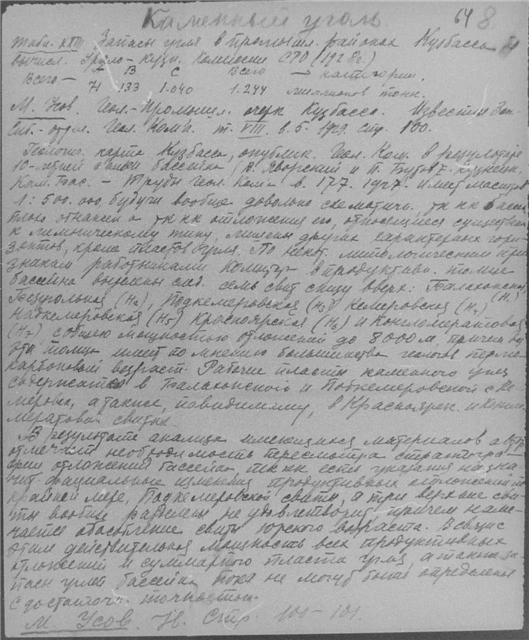 Каменный уголь
64 8
табл. XVIII. Запасы угля в промышл. районах Кузбасса
вычисл. Комиссии СТО (1928 г.)
А В С Всего категории.
Всего — 71 133 1.040 1.244 миллионов тонн.
М. Усов. Геол.-Промышл. очерк Кузбасса. Известия Зап.
Сиб. отдел. Геол. Ком. т. VIII. в. 5. стр. 100.
Геологич. карта Кузбасса, опублик. Геол. Ком. в результате
10-летней съемки бассейна В. Яворский и П. Бутов
Кам. Бас. — Труды Геол. Ком. в. 177. 1927. имеет масштаб
1:500.000 будучи вообще довольно схематич. т.к. к
т.к. отложения его, относящиеся существен.
к лимническому типу, лишены других характерных гори-
зонтов, кроме пластов угля. По некот. литологическим при-
знакам работниками Комитета в продуктивн. толще
бассейна выделены след. семь свит снизу вверх: Балахонская (H1)
Безугольная (H2), Подкемеровская (H3) Кемеровская (H4)
Надкемеровская (H5) Красноярская (H6) и Конгломератовая
(H7) с общею мощностью отложений до 8000 м. причем вся
эта толща имеет по мнению большинства геологов пермо-
карбоновый возраст. Рабочие пласты каменного угля
содержатся в Балахонской и Подкемеровской с Ке-
меровск., а также, повидимому, в Красноярск. и Конгло-
мератовой свитах.
В результате анализа имеющихся материалов автор
отмечает необходимость пересмотра стратигра-
фии отложений бассейна, т.к. есть указания на зна-
чит. фациальные изменения продуктивных отложений по
крайней мере, Подкемеровской свиты, а три верхние сви-
ты вообще разделены не удовлетворит. причем наме-
чается обособление свиты юрского возраста. В связи с
этим действительная мощность всех продуктивных
отложений и суммарного пласта угля, а также за-
пасы углей бассейна пока не могут быть определены
с достаточн. точностью.
М. Усов. Н. Стр. 101-101.